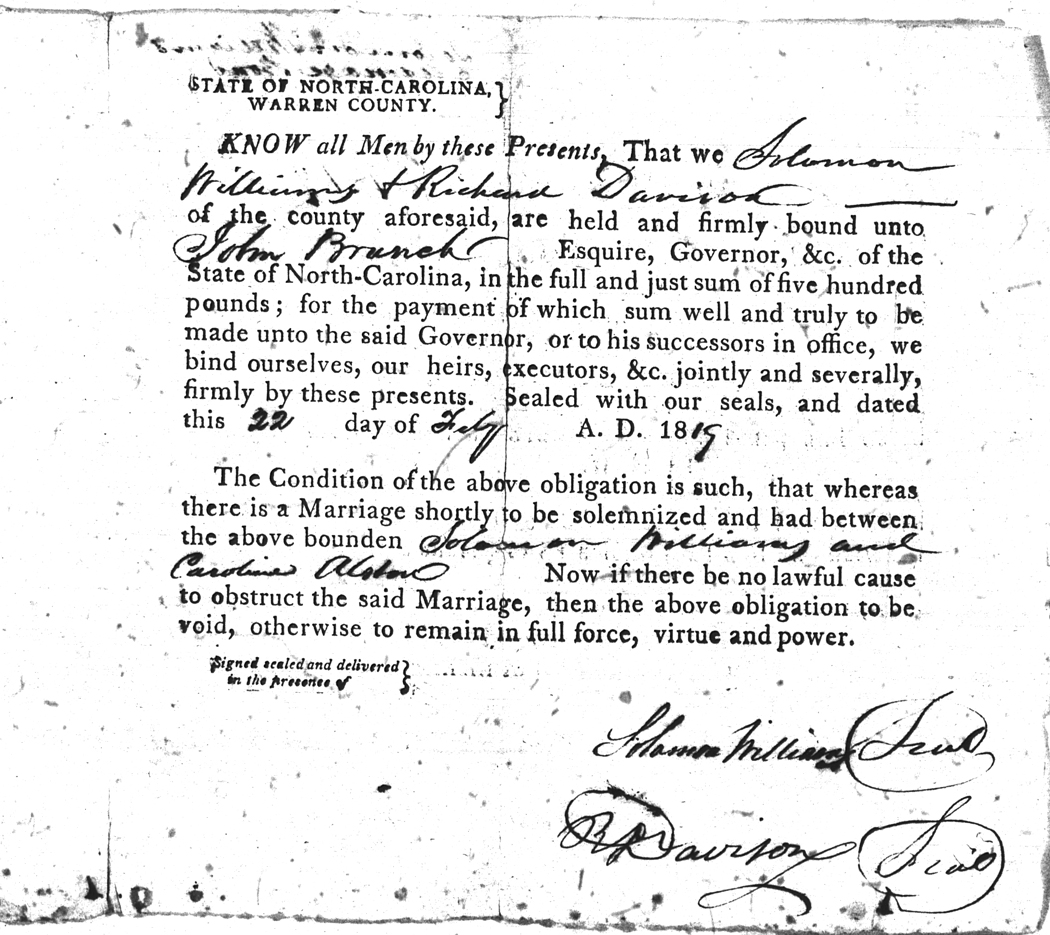 STATE OF NORTH-CAROLINA,
WARREN COUNTY.
KNOW all Men by these Presents, That we Solomon
Williams & Richard Davison
of the county aforesaid, are held and firmly bound unto
John Branch Esquire, Governor, &c. of the
State of North-Carolina, in the full and just sum of five hundred
pounds; for the payment of which sum well and truly to be
made unto the said Governor, or to his successors in office, we
bind ourselves, our heirs, executors, &c. jointly and severally,
firmly by these presents. Sealed with our seals, and dated
this 22 day of Feby A. D. 1819
The Condition of the above obligation is such, that whereas
there is a Marriage shortly to be solemnized and had between
the above bounden Solomon Williams and
Caroline Alston Now if there be no lawful cause
to obstruct the said Marriage, then the above obligation to be
void, otherwise to remain in full force, virtue and power.
Signed sealed and delivered
in the presence of
Solomon Williams Seal
R Davison Seal